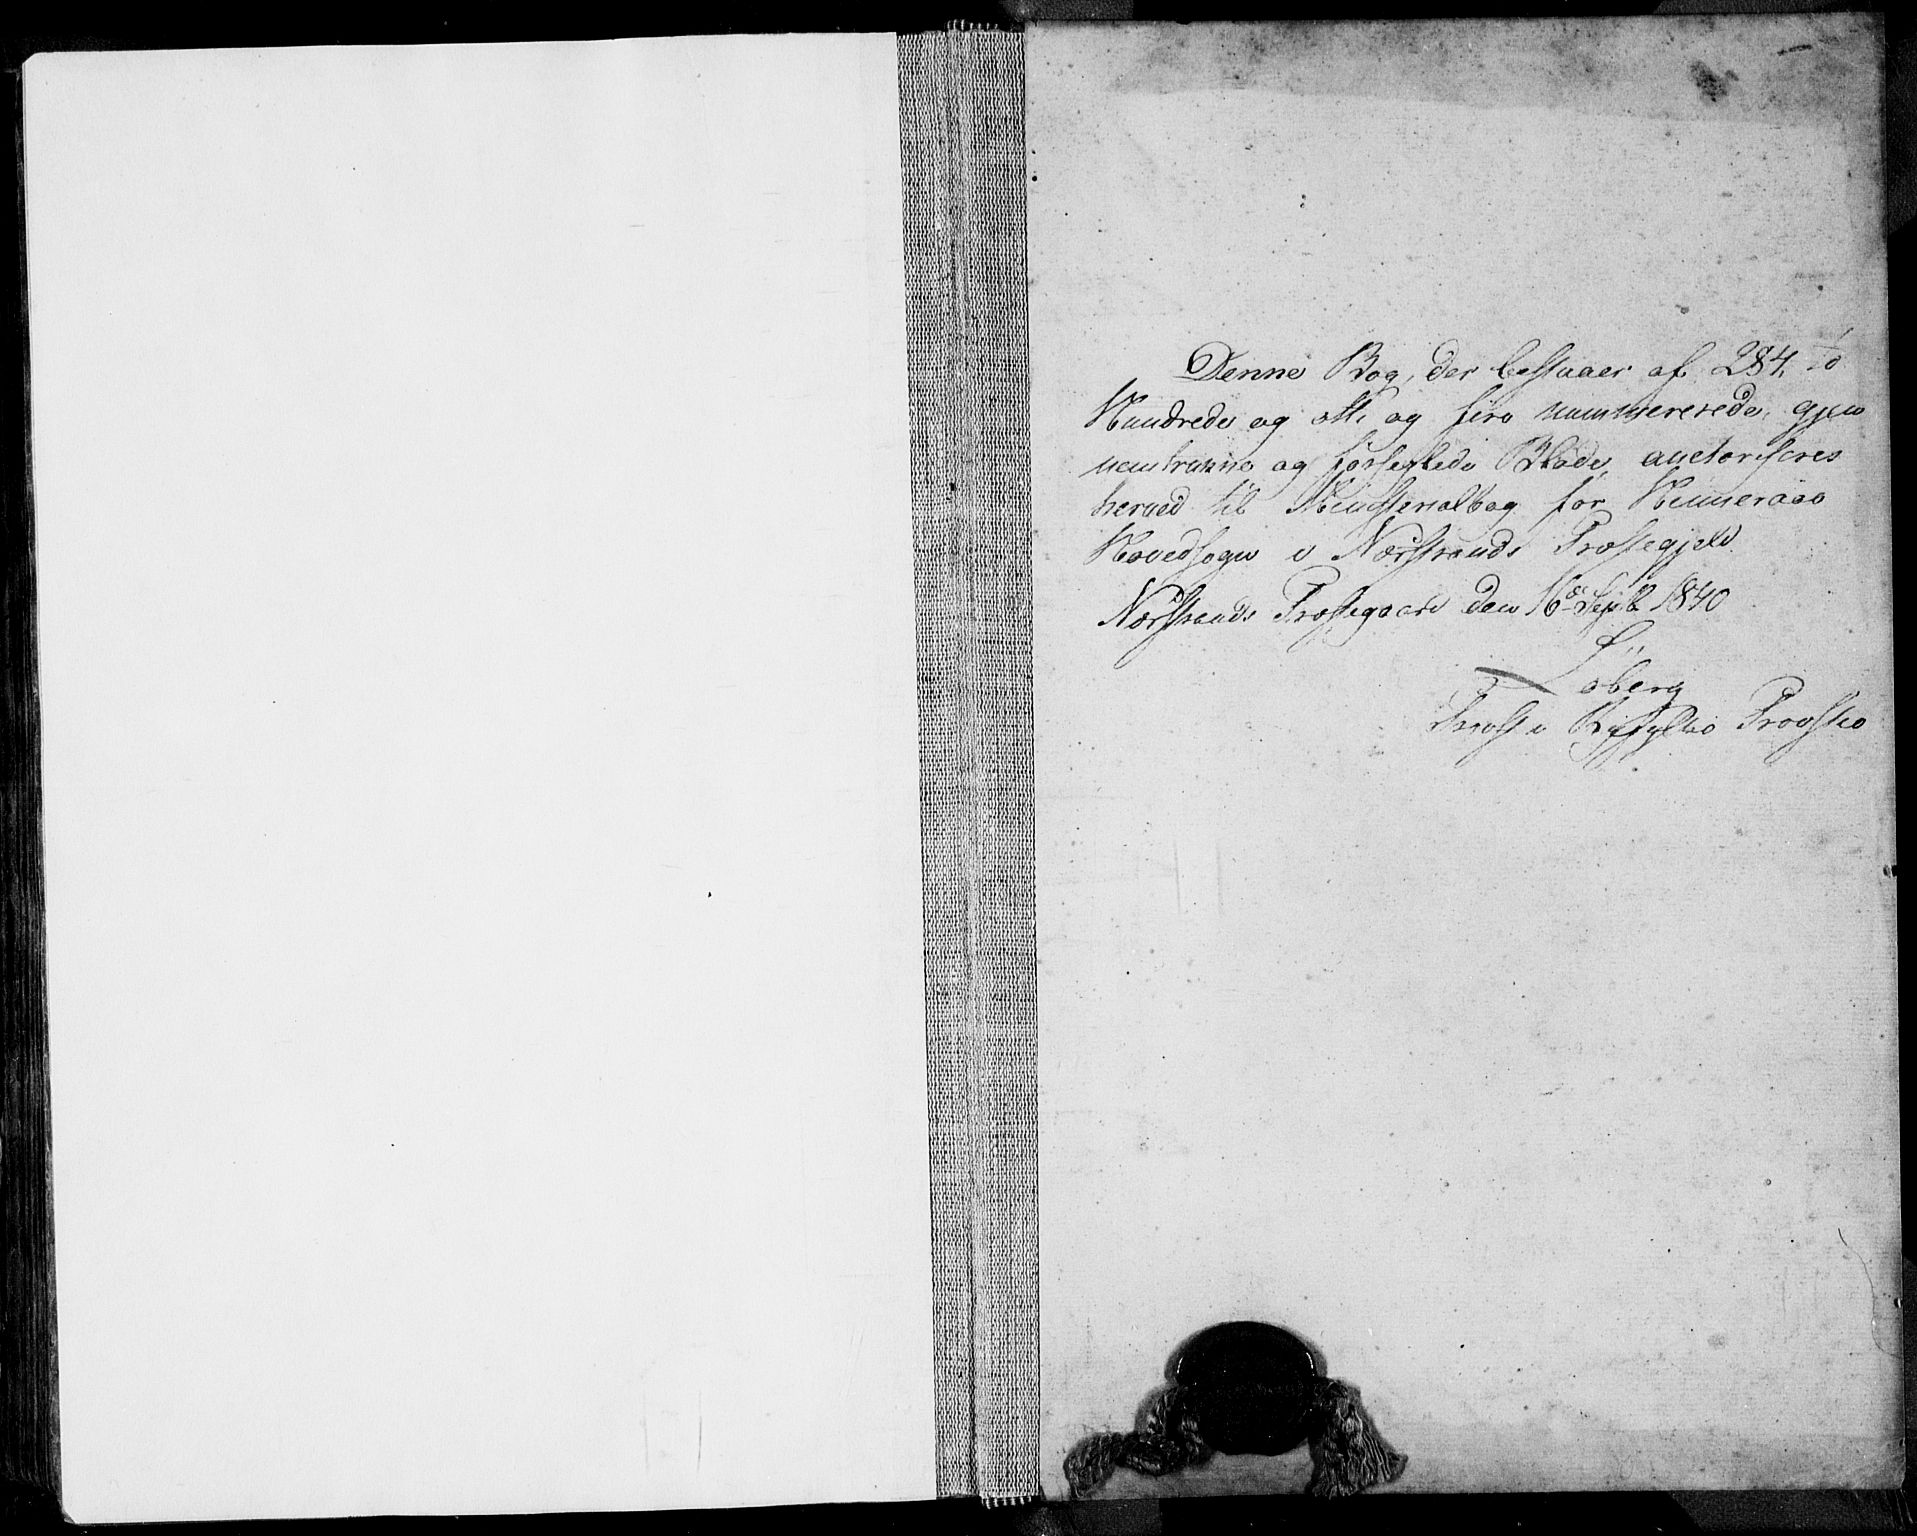 Denne Bog, der bestaaer af 284, To
Hundrede og otti og fire nummererede, gjen
nemtrukne og forseglede Blade, auctoriseres
herved til Ministerialbog for Hinneraae
Hovedsogn i Nærstrands Præstegjeld.
Nærstrands Præstegaard den 16de Septb 1840
Søberg
Provst i Ryfylke Provstie